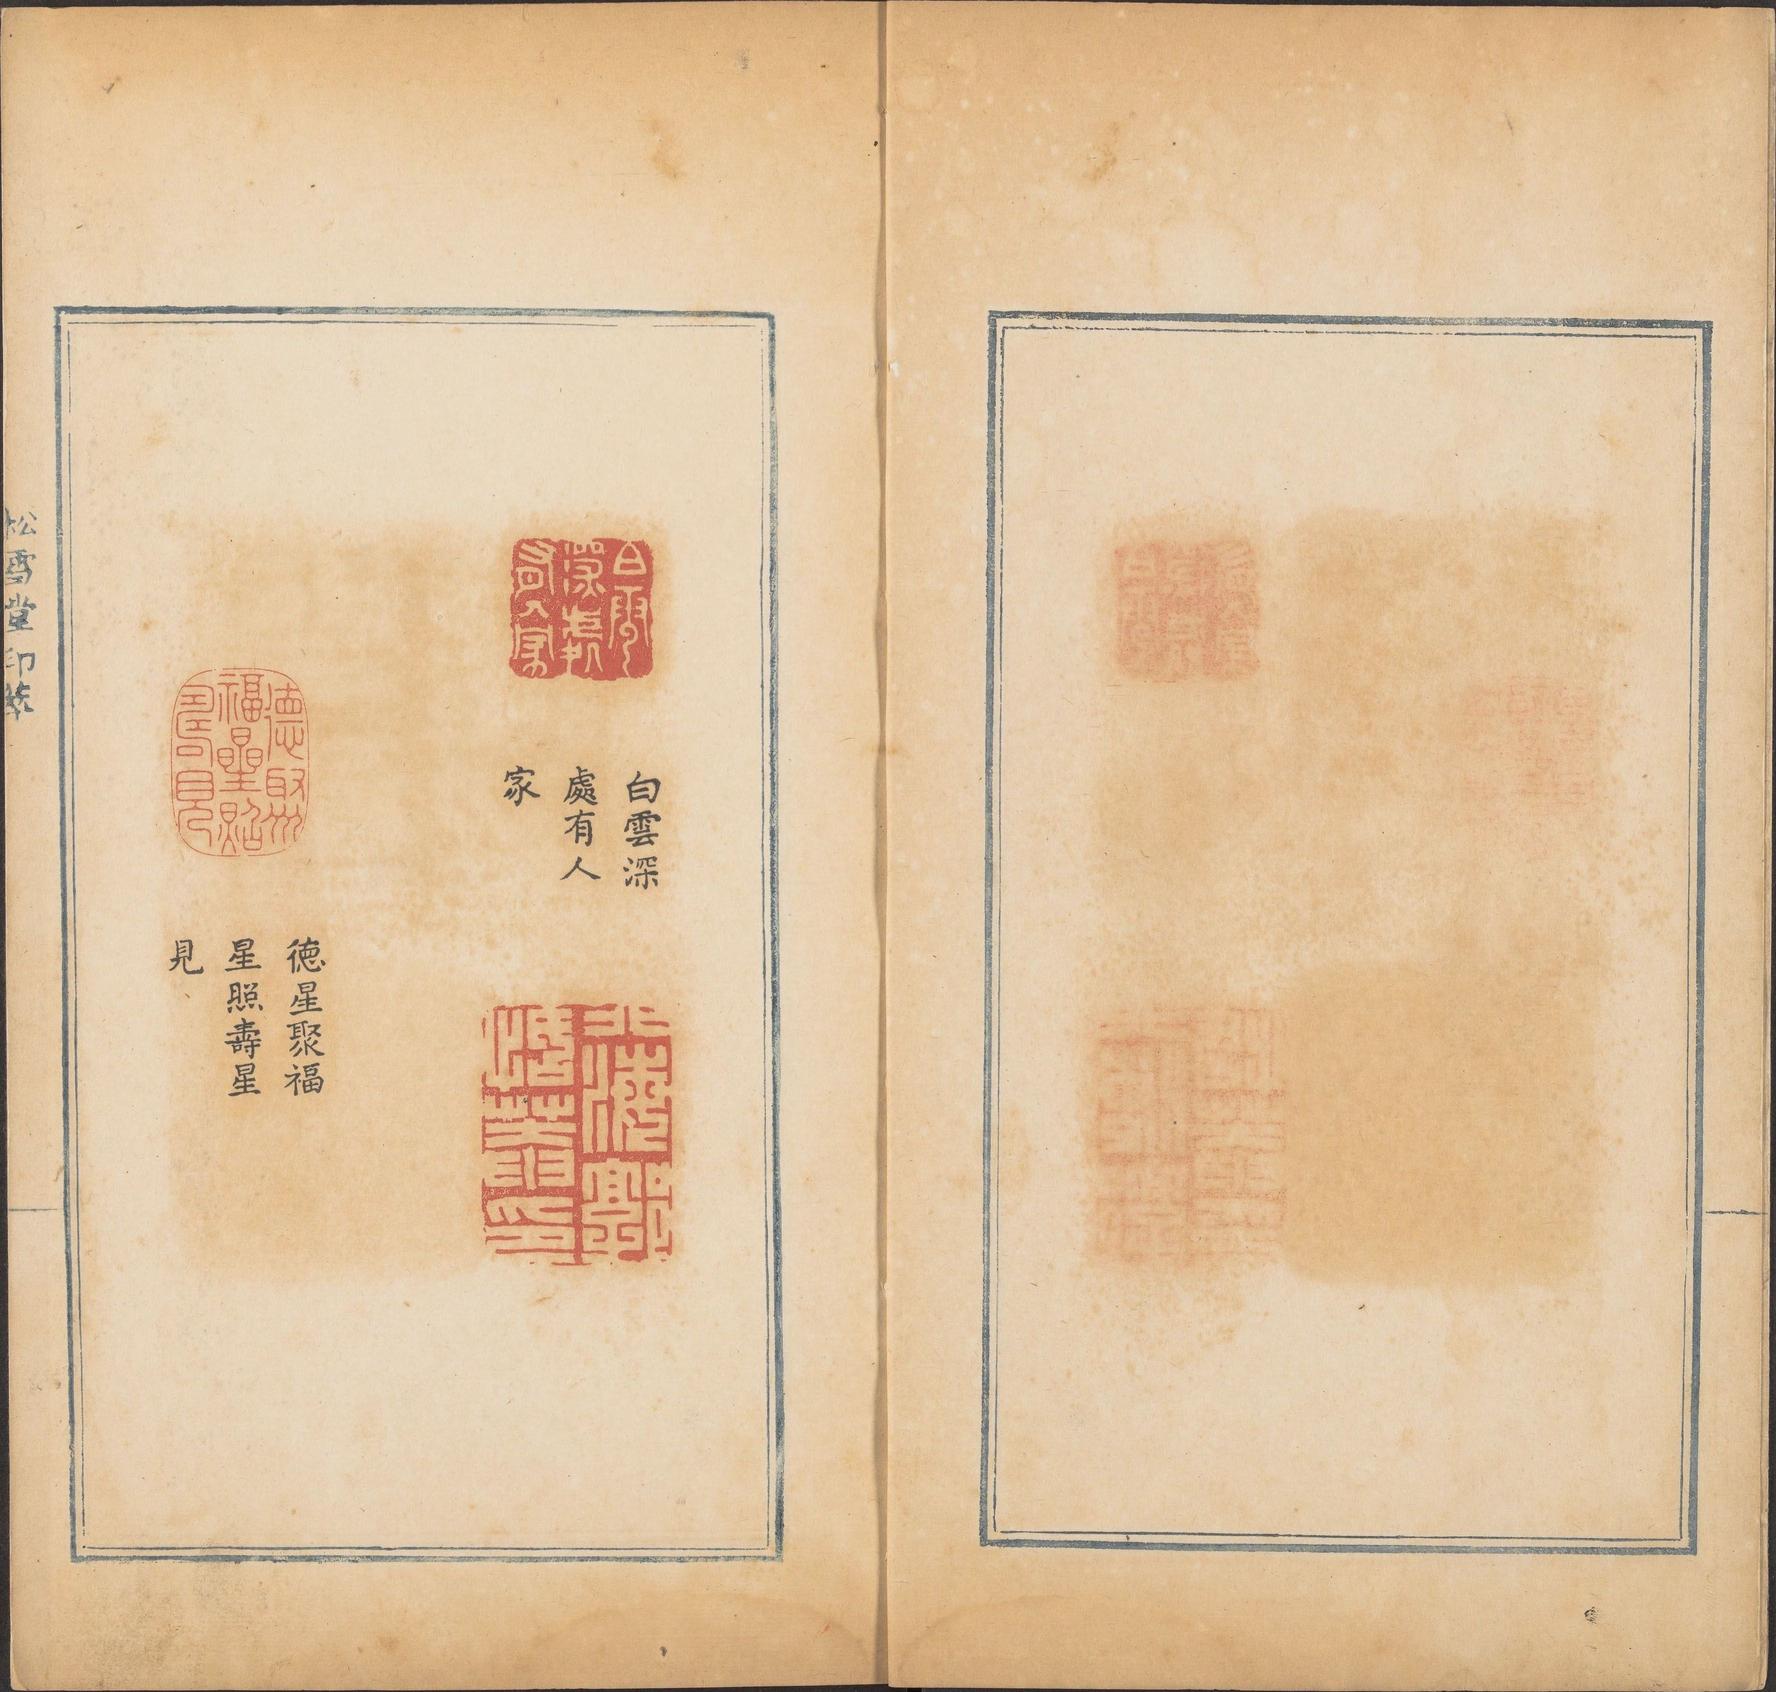 白雲深
處有人
家
德星聚福
星照壽星
見
松雪堂印萃